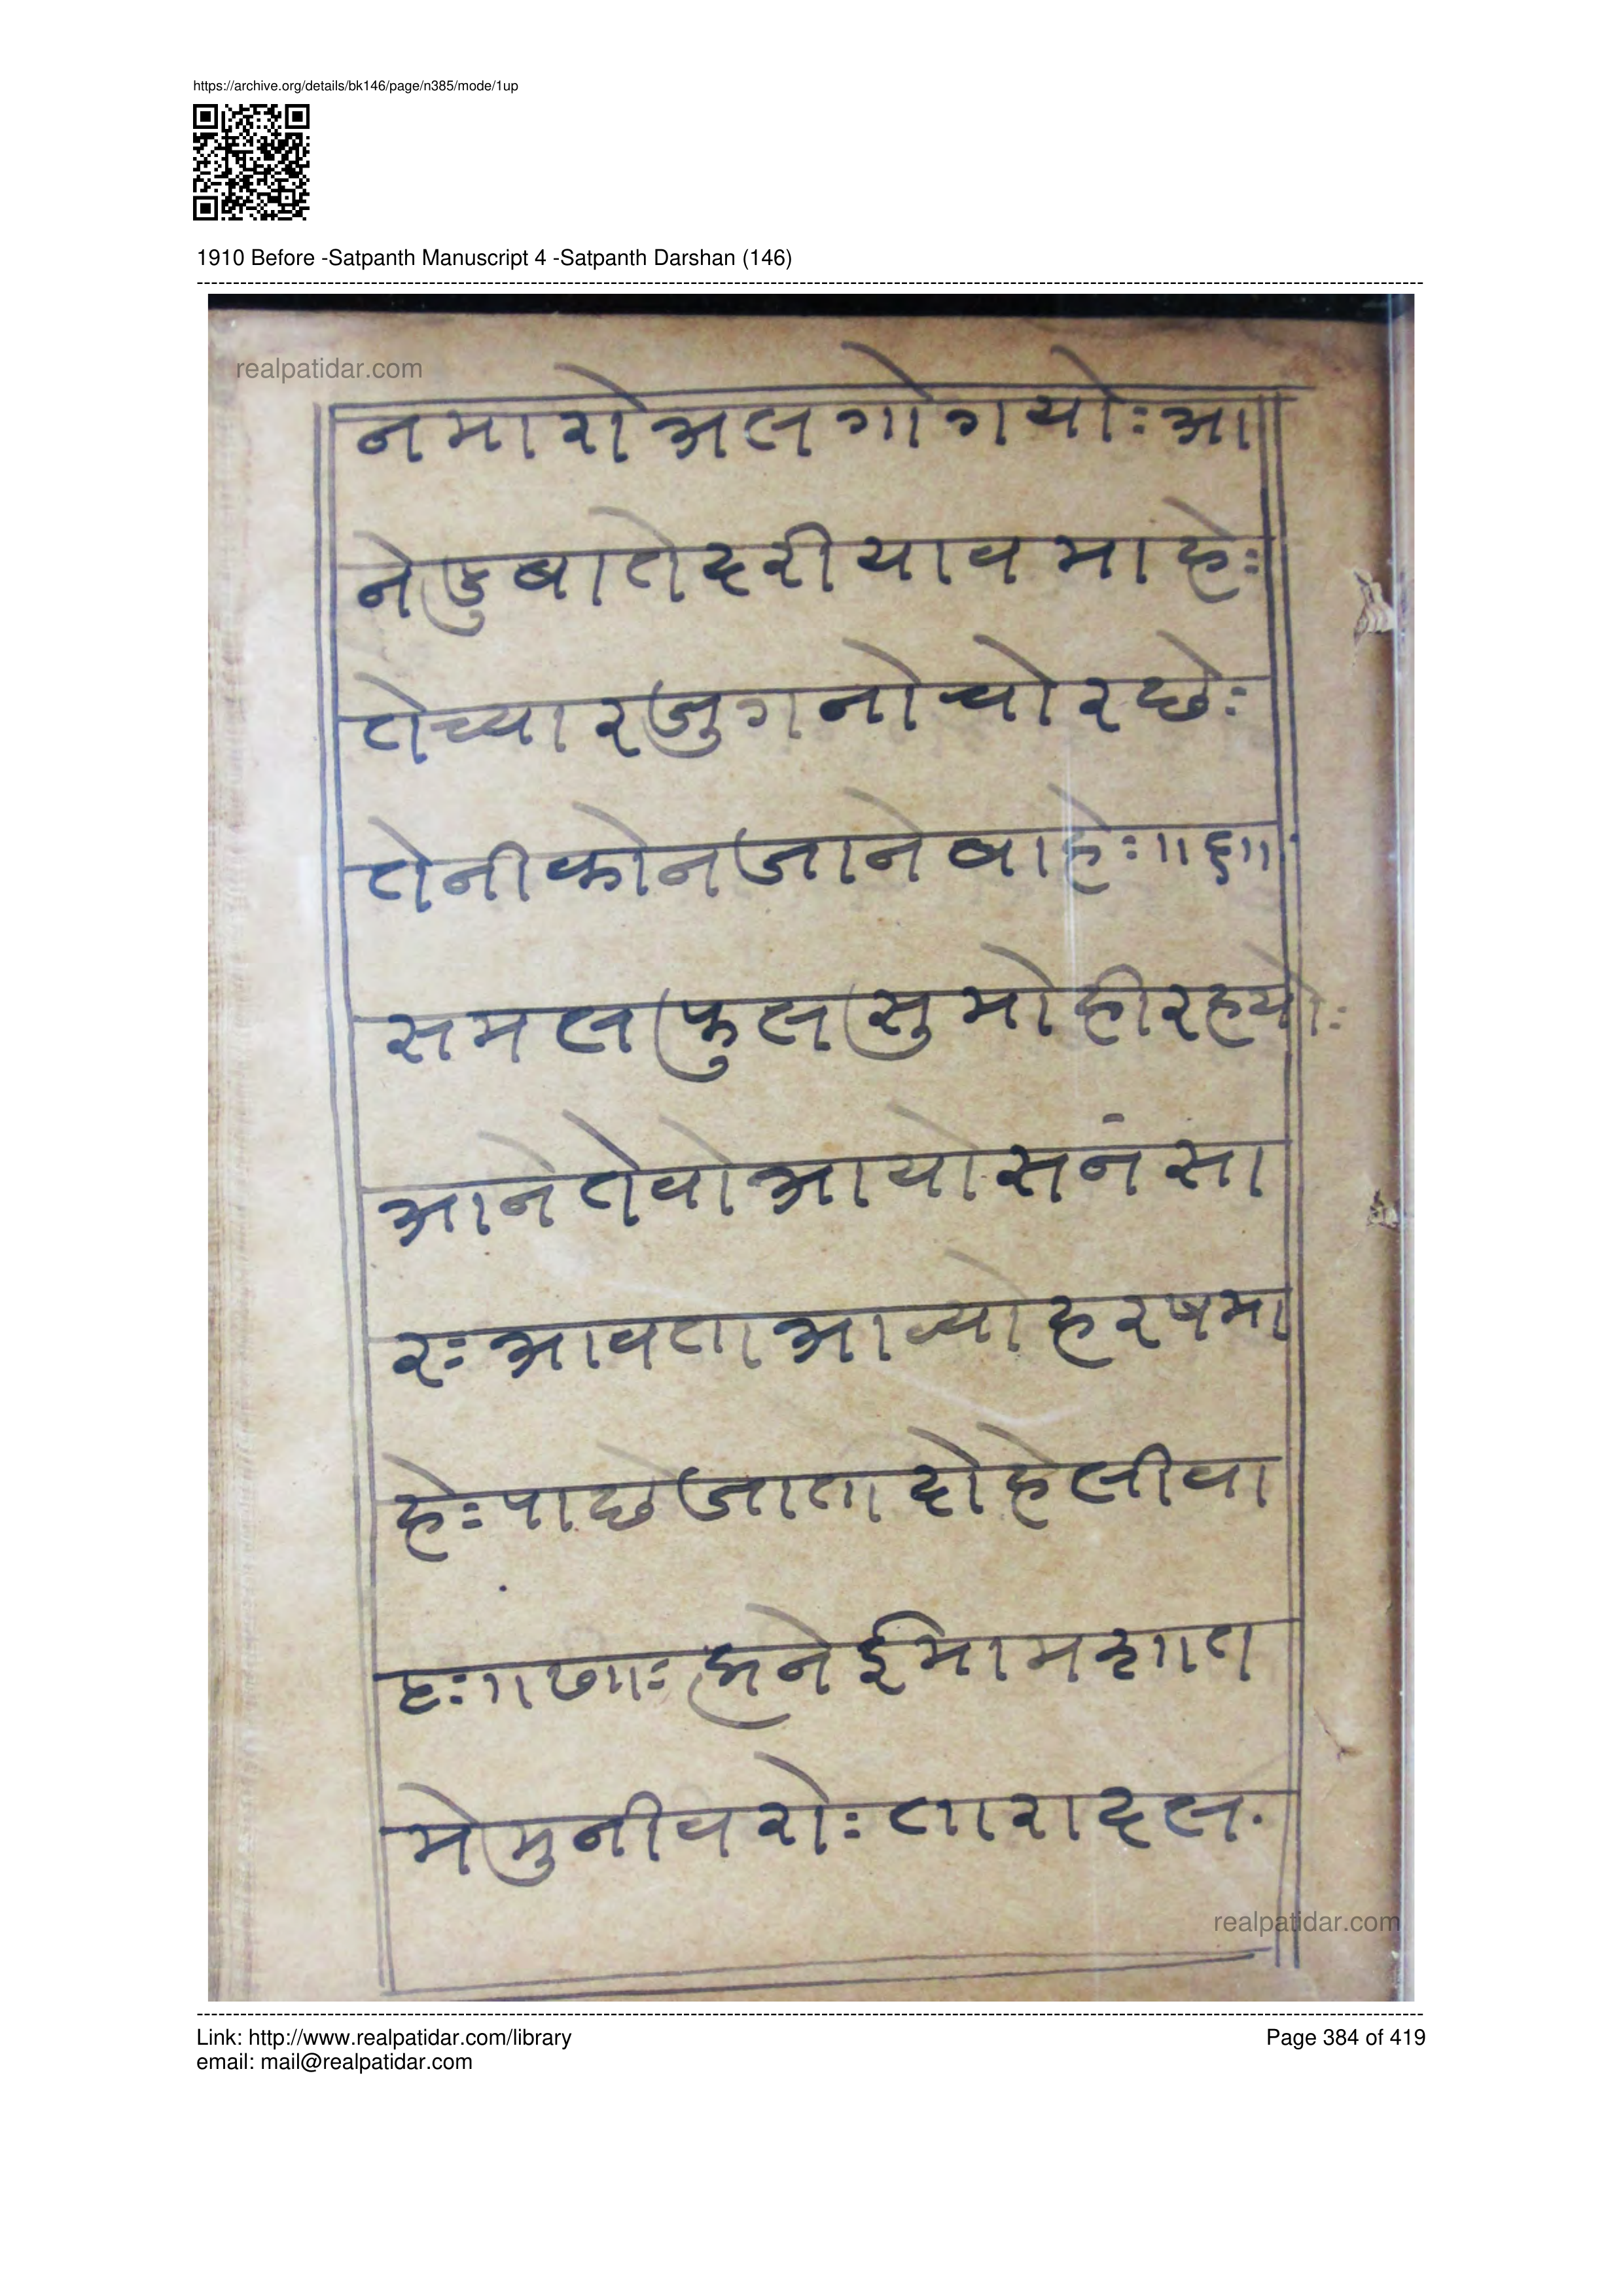 https://archive.org/details/bk146/page/n385/mode/1up
1910 Before -Satpanth Manuscript 4 -Satpanth Darshan (146)
realpatidar.com
नमारोअलगोगयोः आ
नेडुबातेदरीयावमाहेः
तेच्यारजुगनोचोरछेः
तेनीकोनजानेवाहेः ॥६॥
समलफुलसुमोहीरहयोः
आनेतेवोआयोसनंसा
रः आवताआव्योहरषमा
हेः पाछेजातादोहेलीवा
हः ॥७॥ः अनेईमाम
मेमुनीवरोः तारादल.
realpatidar.com
Link: http://www.realpatidar.com/library
Page 384 of 419
email: mail@realpatidar.com